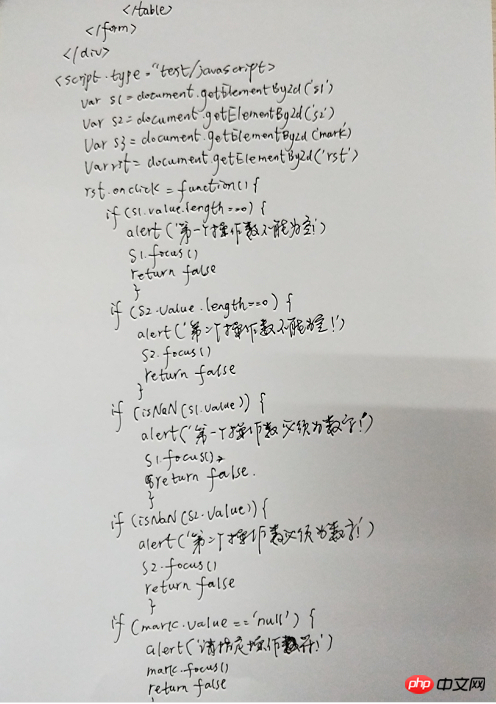 </table>
</form>
</div>
<script.type="text/javascript>
var s1=document.getElementById('s1')
var s2=document.getElementById('s2')
var s3=document.getElementById('mark')
var rst=document.getElementById('rst')
rst.onclick=function(){
if(s1.value.length==0){
alert('第一个操作数不能为空!')
s1.focus()
return false
}
if(s2.value.length==0){
alert('第二个操作数不能为空!')
s2.focus()
return false
}
if(isNaN(s1.value)){
alert('第一个操作数必须为数字!')
s1.focus()
return false.
}
if(isNaN(s2.value)){
alert('第二个操作数必须为数字!')
s2.focus()
return false
}
if(mark.value=='null'){
alert('请指定操作数符!')
mark.focus()
return false
php中文网